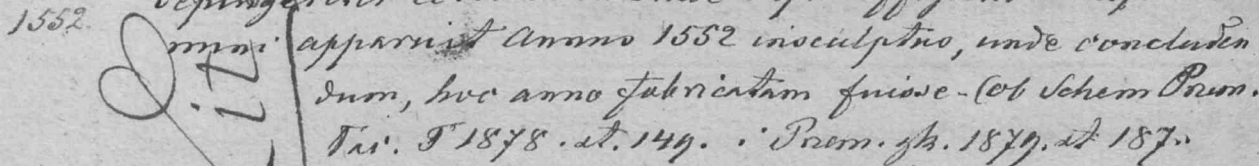 1552
mini apparuit Annno 1552 insculptus, unde concluden
dum, hoc anno fabricatam fuisse - (ob Schem Prem.
Tis. T 1878. st. 149. i Prem. gk. 1879. st 187.
it